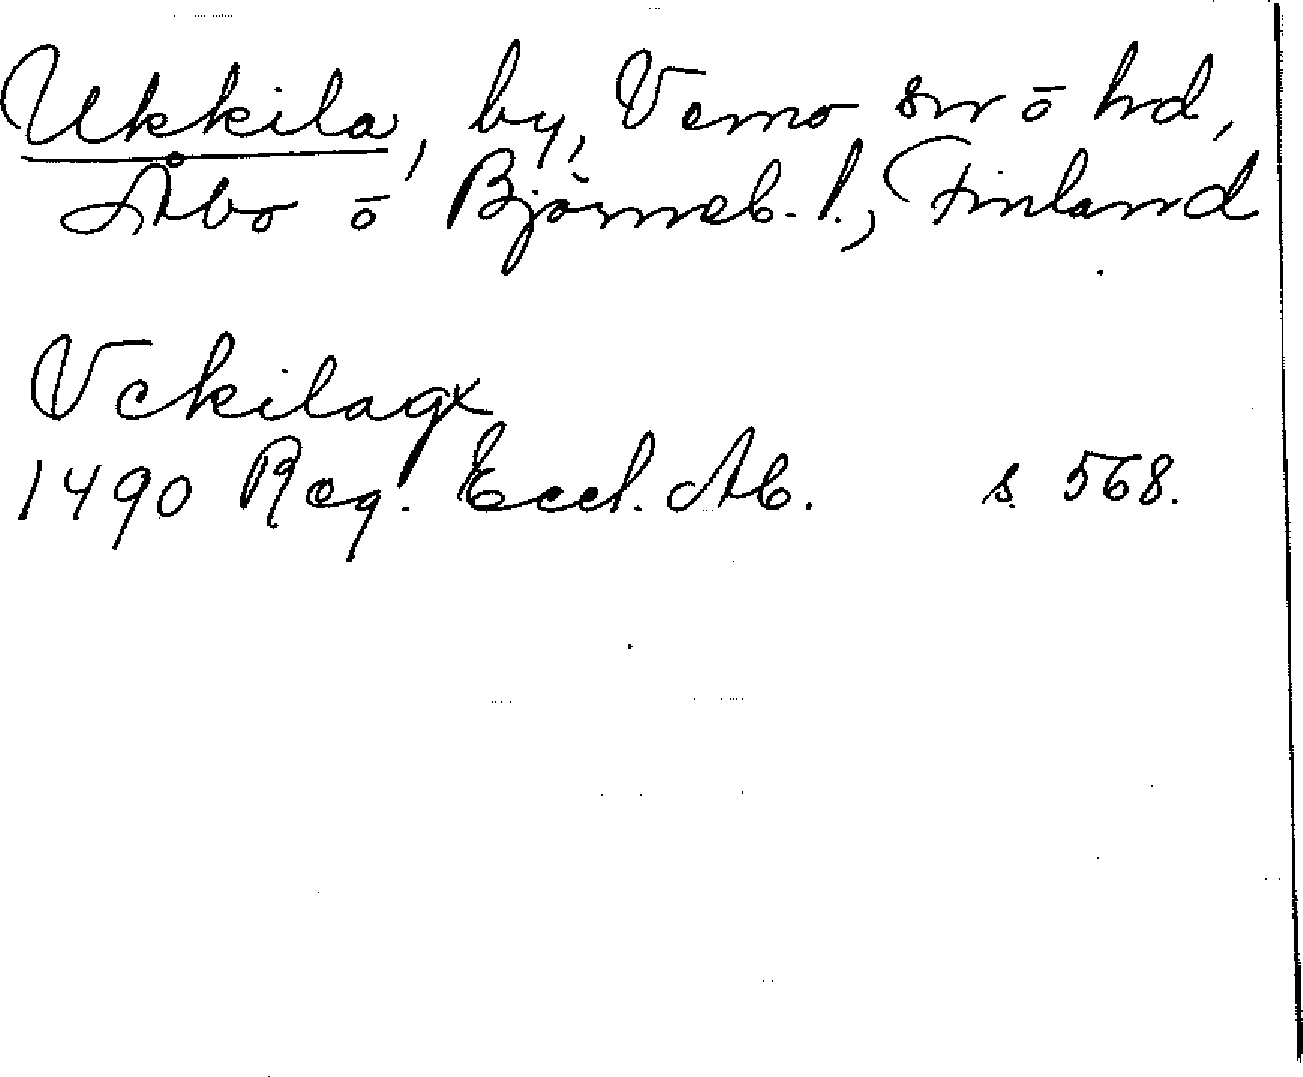 Ukkila, by, Vemo sn ō hd,
Åbo ō Björneb. l., Finland
Vckilax
1490 Reg. Eccl. Ab. s. 568.